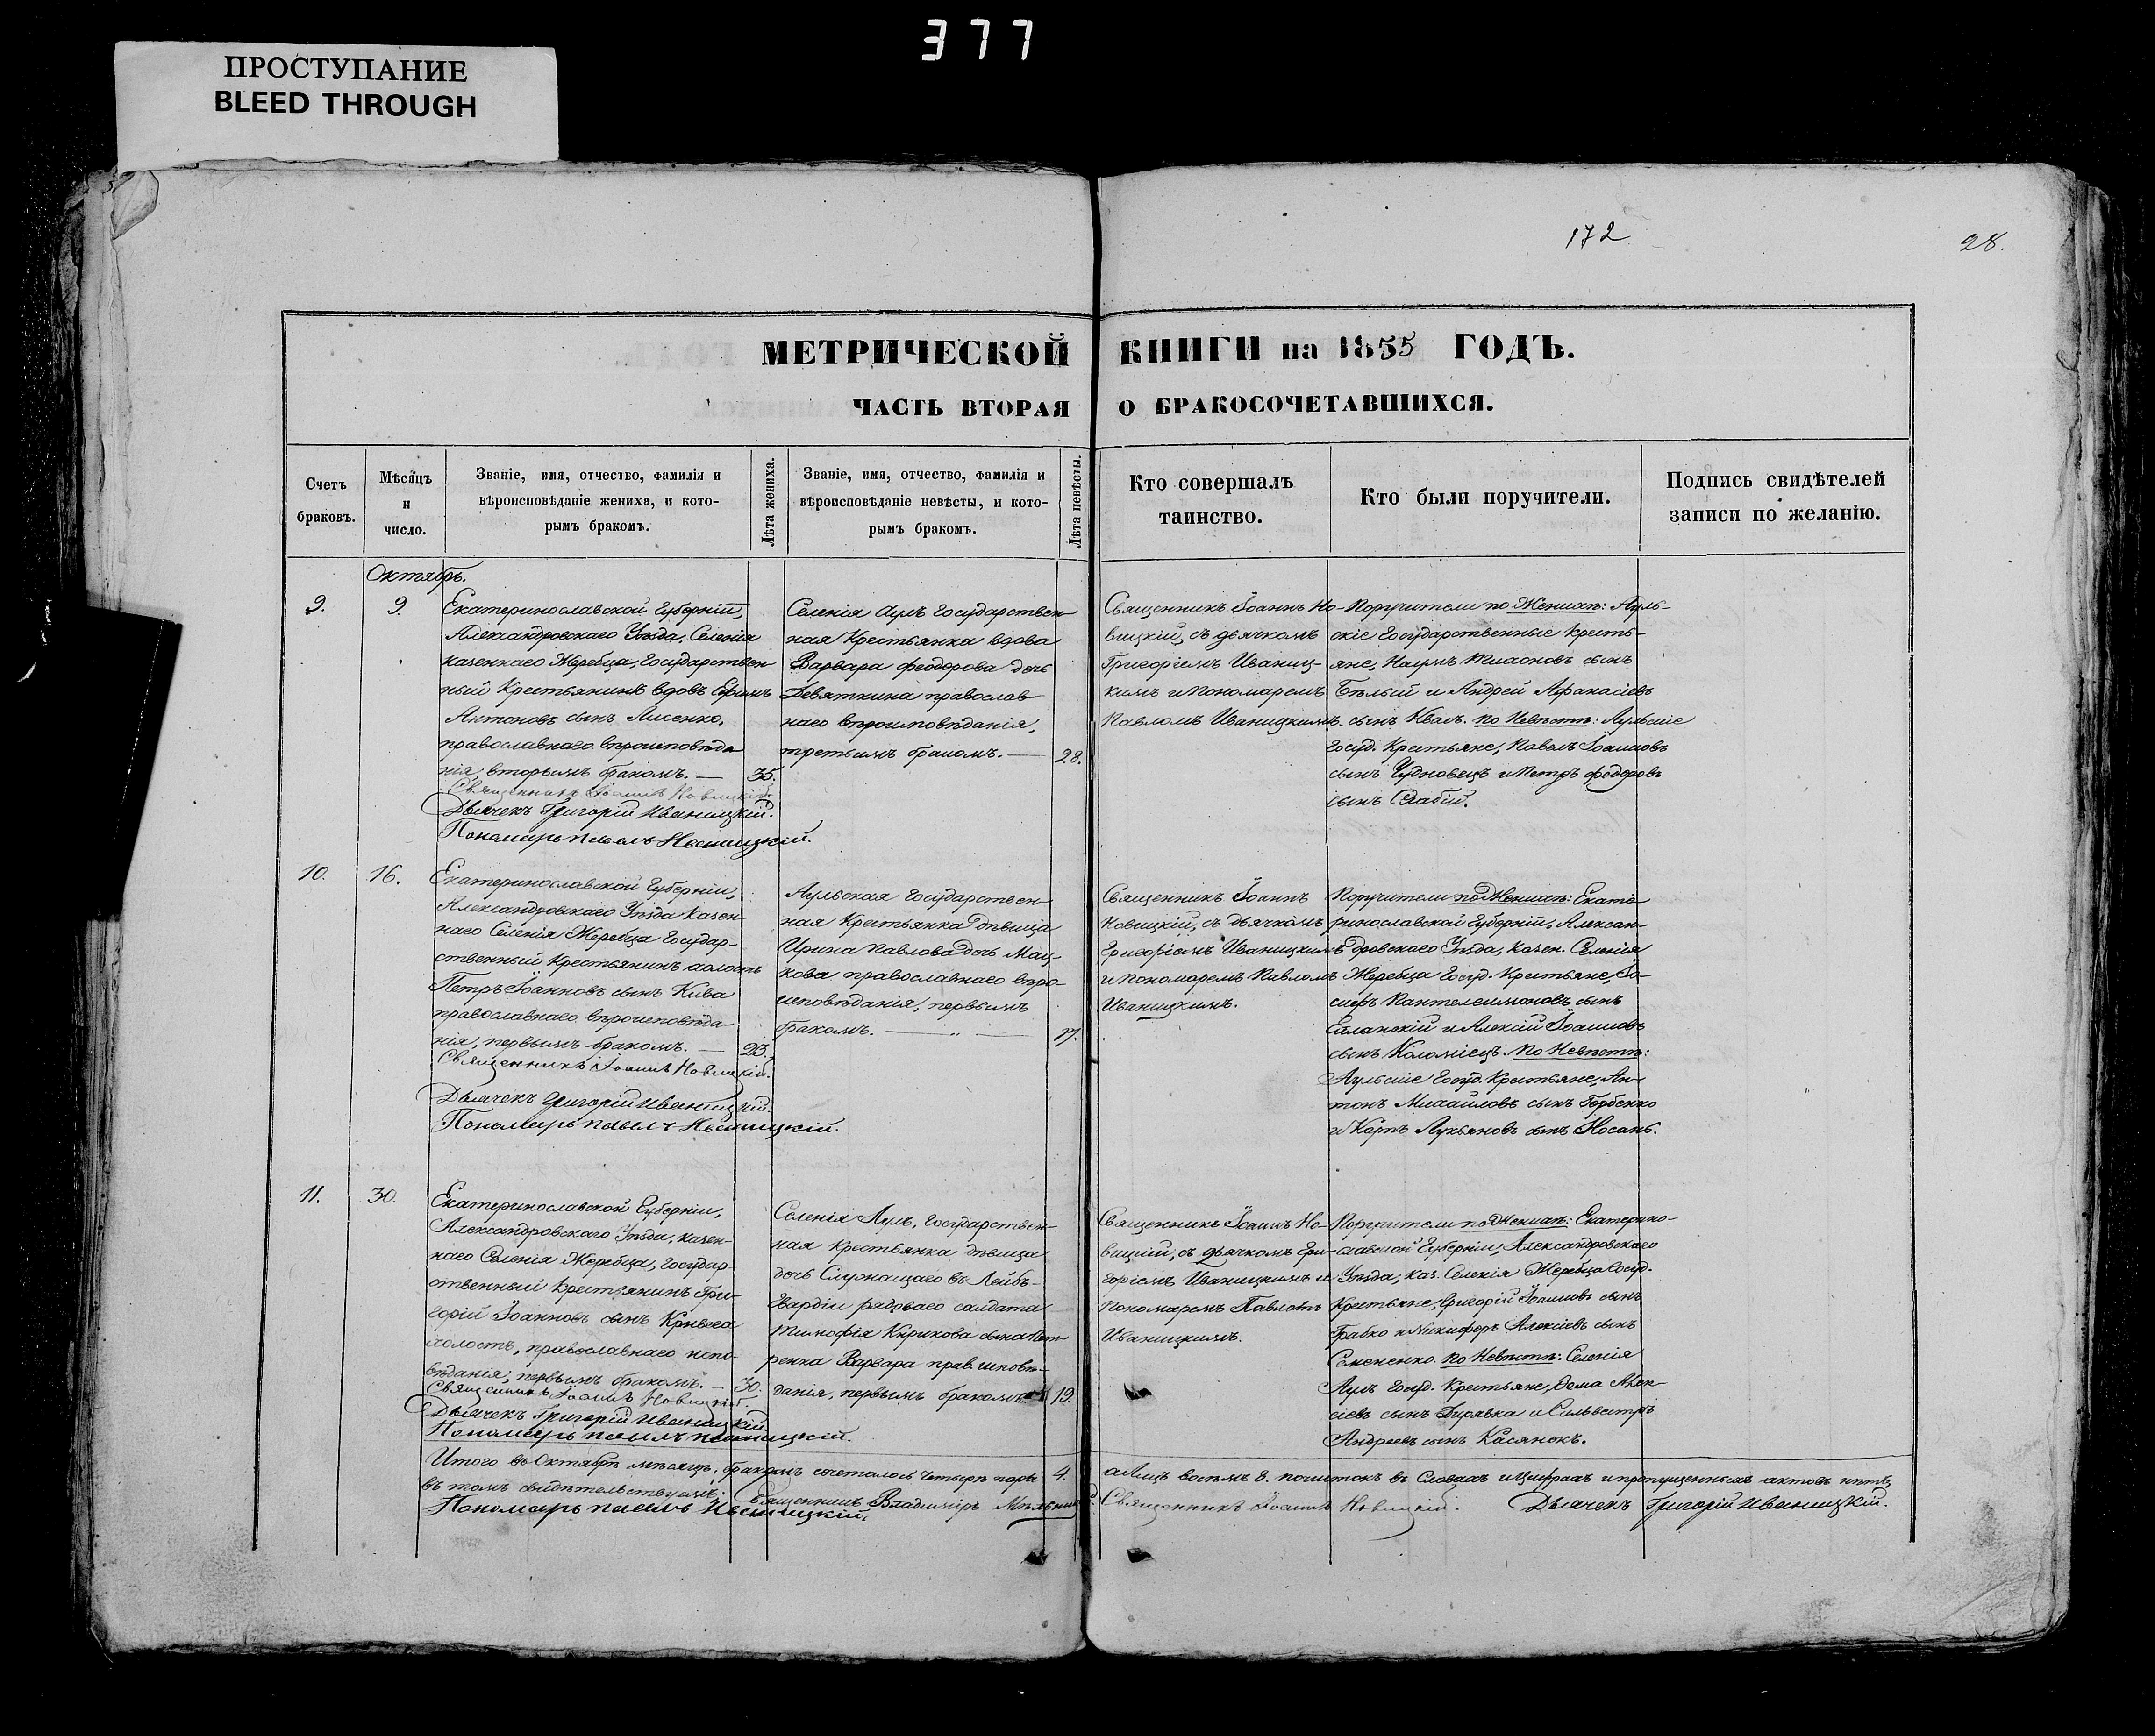 377
ПРОСТУПАНИЕ
BLEED THROUGH
172
28.
МЕТРИЧЕСКОЙ КНИГИ на 1855 ГОДЪ.
ЧАСТЬ ВТОРАЯ О БРАКОСОЧЕТАВШИХСЯ.
Счетъ
браковъ.
Мѣсяцъ
и
число.
Званіе, имя, отчество, фамилія и
вѣроисповѣданіе жениха, и кото-
рымъ бракомъ.
Лѣта жениха.
Званіе, имя, отчество, фамилія и
вѣроисповѣданіе невѣсты, и кото-
рымъ бракомъ.
Лѣта невѣсты.
Кто совершалъ
таинство.
Кто были поручители.
Подпись свидѣтелей
записи по желанію.
Октябрь.
9.
9.
Екатеринославской Губерніи,
Александровскаго Уѣзда, Селенія
казеннаго Жеребца, Государствен
ный Крестьянинъ вдовъ Ефимъ
Антоновъ сынъ Лисенко,
православнаго вѣроисповѣда
нія, вторымъ бракомъ. —
35.
Священникъ Іоаннъ Новицкій.
Дьячекъ Григорій Иваницкій.
Пономарь Павелъ Иваницкій.
Селенія Аулъ Государствен-
ная Крестьянка вдова
Варвара Феодорова дочь
Девяткина православ
наго вѣроисповѣданія,
третьимъ бракомъ. —
28.
Священникъ Іоаннъ Но-
вицкій, съ дьячкомъ
Григоріемъ Иваниц-
кимъ и Пономаремъ
Павломъ Иваницкимъ.
Поручители по Женихѣ: Ауль-
скіе Государственные кресть-
яне, Наумъ сынъ
Бѣлый и Андрей Афанасіевъ
сынъ Квал. по Невѣстѣ: Аульскіе
Госуд. Крестьяне, Павелъ Іоанновъ
сынъ Чудновецъ и Петръ Феодоровъ
сынъ Слабій.
10.
16.
Екатеринославской Губерніи,
Александровскаго Уѣзда казен
наго Селенія Жеребца Государ-
ственный Крестьянинъ холостъ
Петръ Іоанновъ сынъ Кива
православнаго вѣроисповѣда-
нія, первымъ бракомъ. —
23.
Священникъ Іоаннъ Новицкій.
Дьячекъ Григорій Иваницкій.
Пономарь Павелъ Иваницкій.
Аульская Государствен-
ная Крестьянка дѣвица
Ирина Павлова дочь Мац-
кова православнаго вѣро-
исповѣданія, первымъ
бракомъ. — „ —
17.
Священникъ Іоаннъ
Новицкій, съ дьячкомъ
Григоріемъ Иваницкимъ
и Пономаремъ Павломъ
Иваницкимъ.
Поручители по Женихѣ: Екате
ринославской Губерніи, Алексан-
дровскаго Уѣзда, казен. Селенія
Жеребца Госуд. Крестьяне, Іо-
сифъ Пантелеимоновъ сынъ
и Алексій Іоанновъ
сынъ Коломіецъ. По Невѣстѣ:
Аульскіе Госуд. Крестьяне, Ан-
тонъ Михайловъ сынъ Горбенко
и Карпъ Лукьяновъ сынъ Носань.
11.
30.
Екатеринославской Губерніи,
Александровскаго Уѣзда, казен-
наго Селенія Жеребца, Государ-
ственный Крестьянинъ Гри-
горій Іоанновъ сынъ
холостъ, православнаго испо-
вѣданія, первымъ бракомъ. —
30.
Священникъ Іоаннъ Новицкій.
Дьячекъ Григорій Иваницкій
Пономарь Павелъ Иваницкій.
Селенія Аулъ, Государствен-
ная крестьянка дѣвица
дочь Служащаго въ Лейбъ-
Гвардіи рядоваго солдата
Тимофія Кирикова сына Пет
ренка Варвара прав. исповѣ-
данія, первымъ бракомъ.
19.
Священникъ Іоаннъ Но-
вицкій, съ дьячкомъ Гри-
горіемъ Иваницкимъ и
Пономаремъ Павломъ
Иваницкимъ.
Поручители по Женихѣ: Екатерино-
славской Губерніи, Александровскаго
Уѣзда, каз. Селенія Жеребца Госуд.
Крестьяне, Григорій Іоанновъ сынъ
Грабко и Никифоръ Алексіевъ сынъ
Семененко. По Невѣстѣ: Селенія
Аулъ Госуд. Крестьяне, Фома Алек-
сіевъ сынъ и Сильвестръ
Андреевъ сынъ Касянокъ.
Итого въ Октябрѣ мѣсяцѣ, бракомъ сочеталось четыре пары 4. а Лицъ восемь 8. почистокъ въ Словахъ и Цифрахъ и пропущенныхъ актовъ нѣтъ,
въ томъ свидѣтельствуемъ: Священникъ Владиміръ Священникъ Іоаннъ Новицкій. Дьячекъ Григорій Иваницкій.
Пономарь Павелъ Иваницкій.